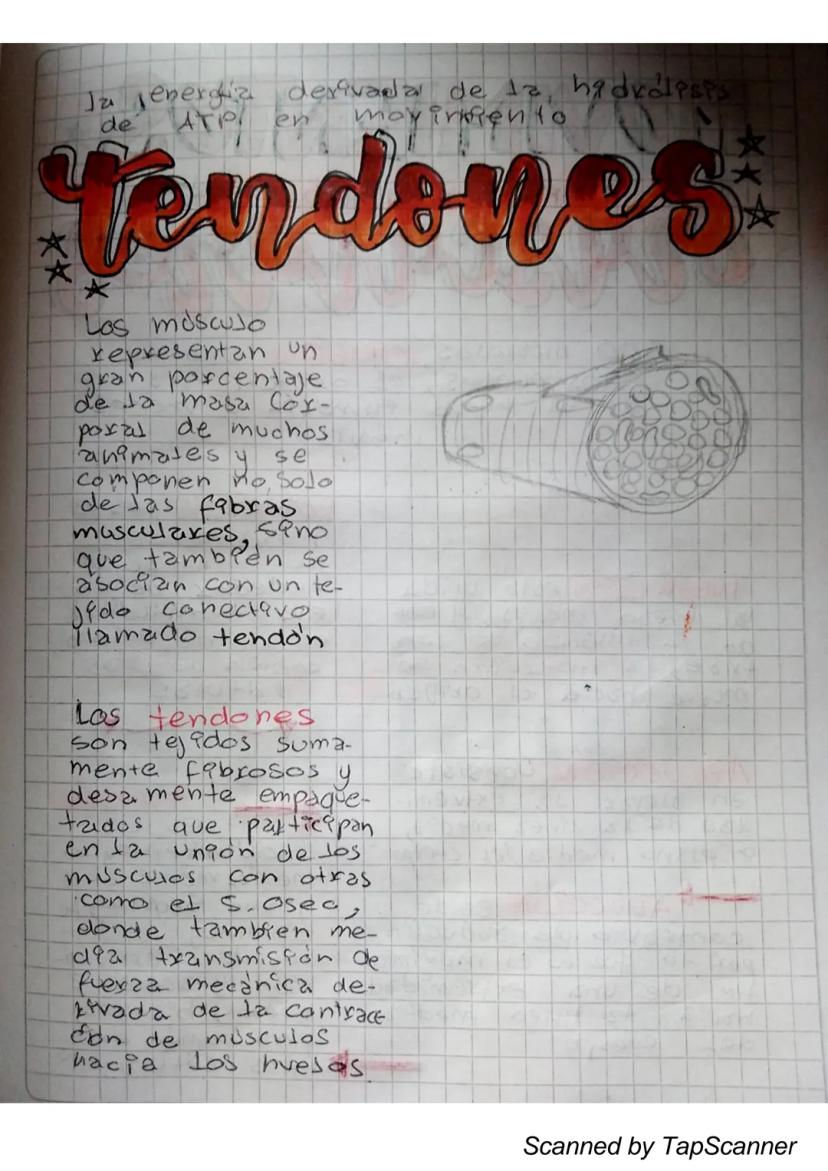 la energía derivada de la hidrólisis
de ATP en movimiento
tendones
Los músculo
representan un
gran porcentaje
de la masa cor-
poral de muchos
animales y se
componen no solo
de las fibras
musculares, sino
que también se
asocian con un te-
jido conectivo
llamado tendón
Los tendones
son tejidos suma-
mente fibrosos y
desamente empaque-
tados que participan
en la unión de los
músculos con otras
como el S. Oseo,
donde tambien me-
dia transmisión de
fuerza mecánica de-
rivada de la contrac
ción de músculos
hacia los huesos
Scanned by TapScanner